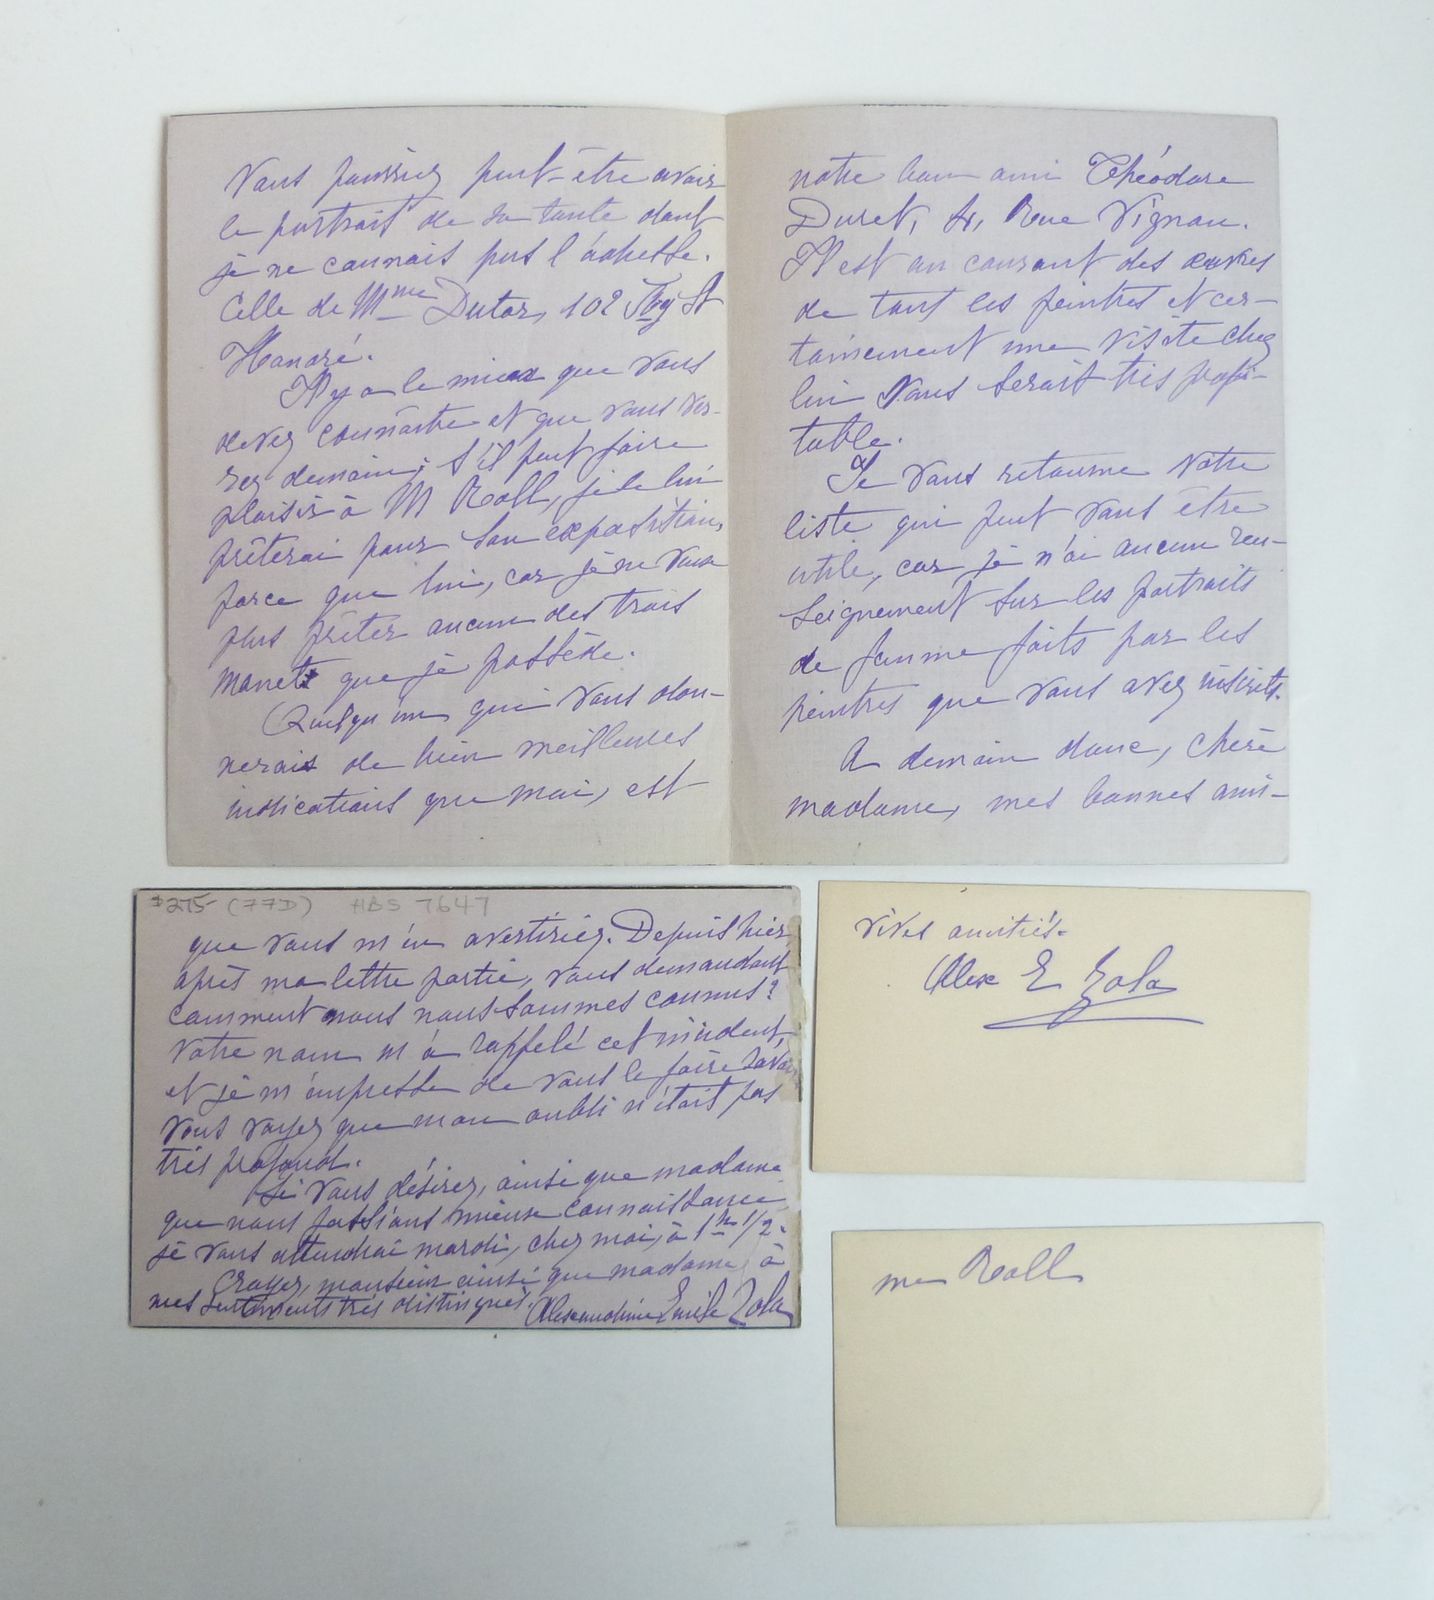 Vous pourriez peut-être avoir
le portrait de sa tante dont
je ne connais pas l'adresse.
Celle de Mme Dutar, 102 Fbg St
Honoré.
Il y a le mien que vous
devez connaître et que vous ver-
rez demain; s'il peut faire
plaisir à M Roll, je le lui
prêterai pour son exposition,
parce que lui, car je ne veux
plus prêter aucun des trois
Manet que je possède.
Quelqu'un qui vous don-
nerais de bien meilleures
indications que moi, est
notre bon ami Théodore
Duret, 4, Rue Vignon.
Il est au courant des œuvres
de tous les peintres et cer-
tainement une visite chez
lui vous serait très profi-
table.
Je vous retourne votre
liste qui peut vous être
utile, car je n'ai aucun ren-
seignement sur les portraits
de femme faits par les
peintres que vous avez inscrits.
A demain donc, chère
madame, mes bonnes ami-
$275- (77D) HBS 7647
que vous m'en avertiriez. Depuis hier,
après ma lettre partie, vous demandant
comment nous nous sommes connus?
Votre nom m'a rappelé cet incident,
et je m'empresse de vous le faire savoir
Vous voyez que mon oubli n'était pas
très profond.
Si vous désirez, ainsi que madame
que nous fassions mieux connaissance
je vous attendrai mardi, chez moi, à 1h 1/2.
Croyez, monsieur ainsi que madame, à
mes sentiments très distingués. Alexandrine Emile Zola
vives amitiés.
Alex E Zola
me Roll